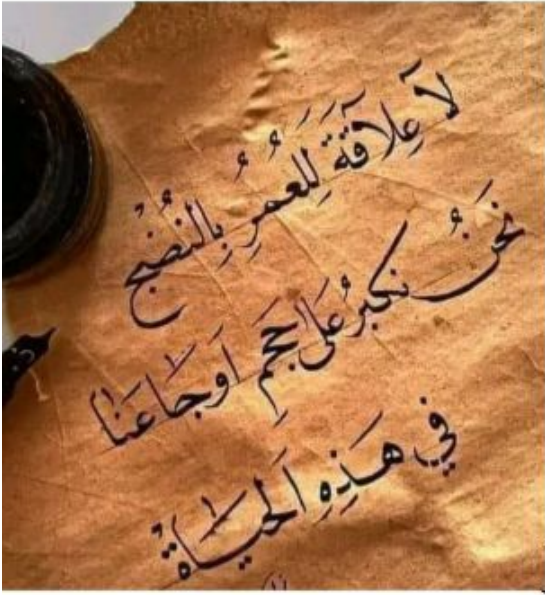 لَا عِلَاقَةَ لِلعُمُرِ بِالنُضْجِ
نَحْنُ نَكبُرُ عَلى حَجَمِ اَوجَاعَنا
فِي هَذِهِ اَلحَيَاةْ